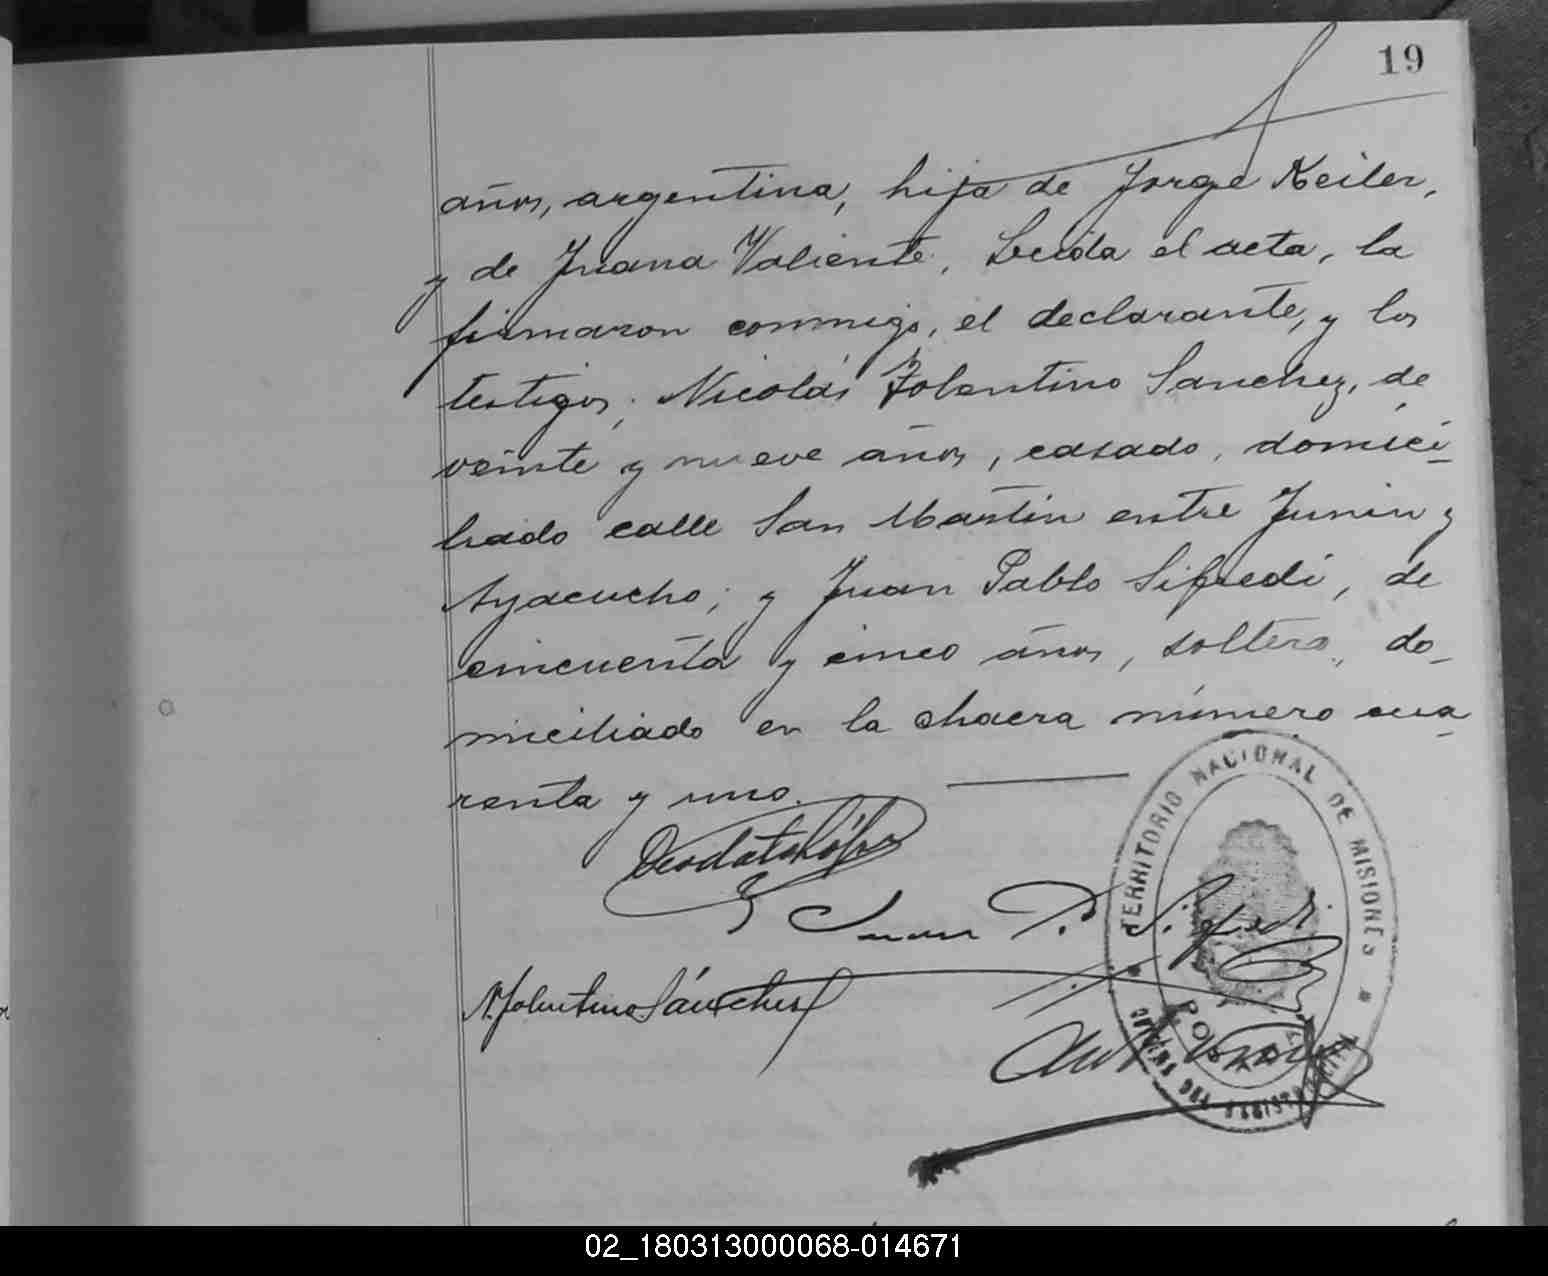 19
años, argentina, hija de Jorge Keiler,
y de Juana Valiente. Leida el acta, la
firmaron conmigo, el declarante, y los
testigos; Nicolás Tolentino Sanchez, de
veinte y nueve años, casado, domici_
liado calle San Martin entre Junin y
Ayacucho; y Juan Pablo Sifredi, de
cincuenta y cinco años, soltero, do_
miciliado en la chacra número cua_
renta y uno.
TERRITORIO NACIONAL DE MISIONES
Juan P. Sifredi
N. Tolentino Sánchez
POSADAS
OFICINA DEL REGISTRO CIVIL
02_180313000068-014671